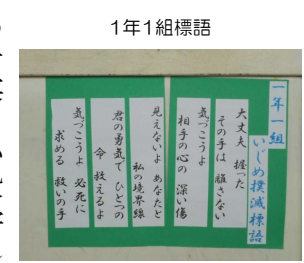 1年1組標語
一年一組
いじめ撲滅標語
大丈夫 握った
その手は 離さない
気づこうよ
相手の心の 深い傷
見えないよ あなたと
私の境界線
君の勇気で ひとつの
命 救えるよ
気づこうよ 必死に
求める 救いの手